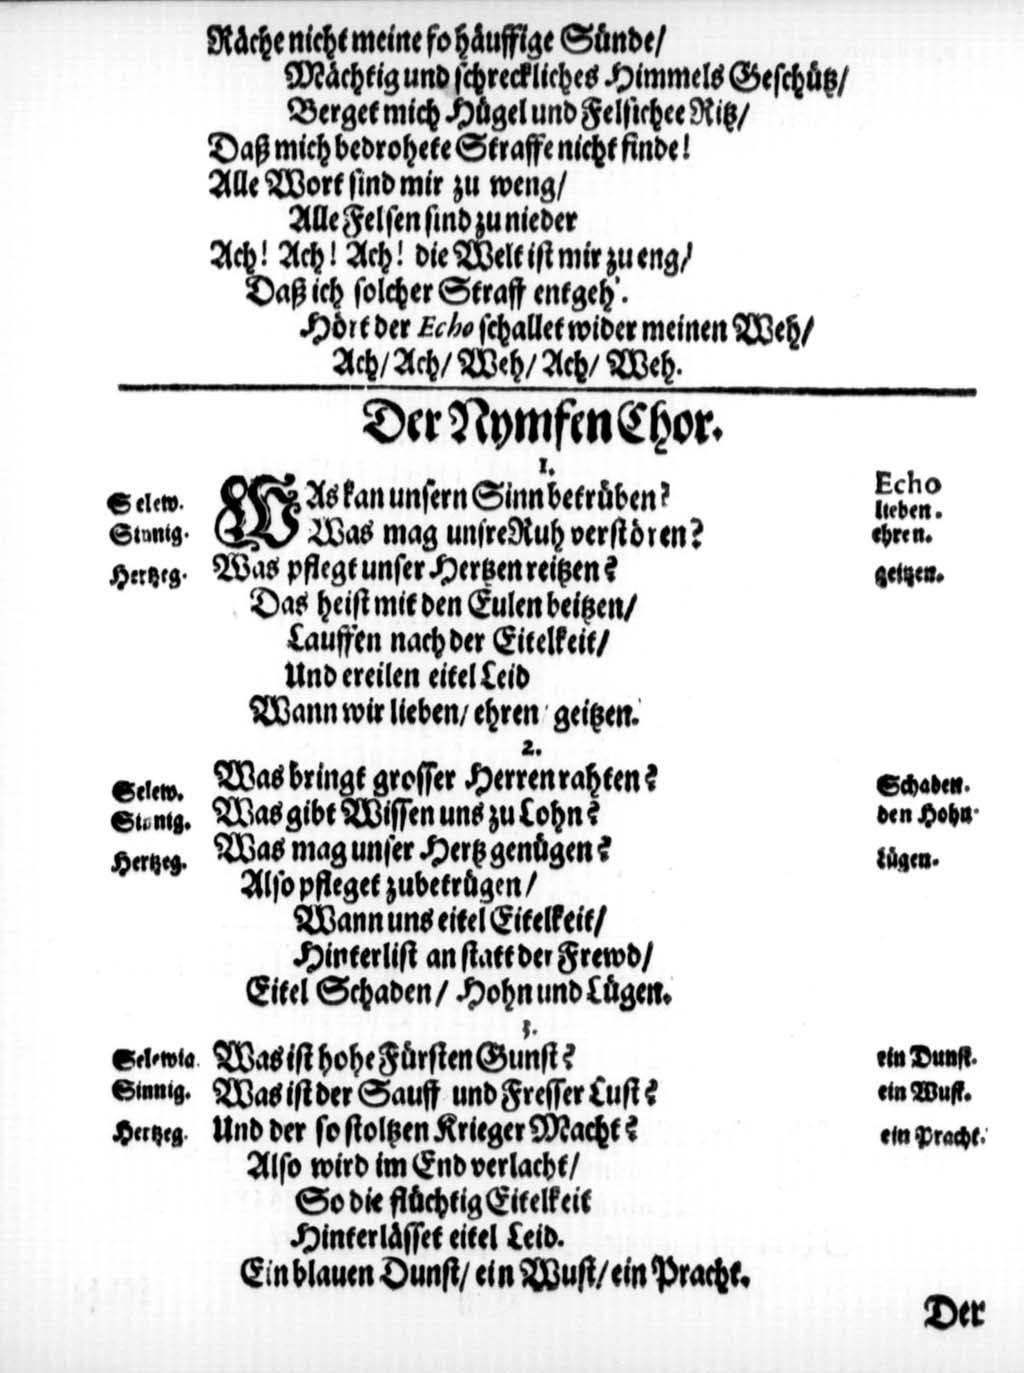 Räche nicht meine so häuffige Sünde/
Mächtig und schreckliches Himmels Geschütz/
Berget mich Hügel und Felsichee Ritz/
Daß mich bedrohete Straffe nicht finde!
Alle Wort sind mir zu weng/
Alle Felsen sind zu nieder
Ach! Ach! Ach! die Welt ist mir zu eng/
Daß ich solcher Straff entgeh'.
Hört der Echo schallet wider meinen Weh/
Ach/ Ach/ Weh/ Ach/ Weh.
Der Nymfen Chor.
1.
Echo
Selew. WAs kan unsern Sinn betrüben? lieben.
Sinnig. Was mag unsre Ruh verstören? ehren.
Hertzeg. Was pflegt unser Hertzen reitzen? geitzen.
Das heist mit den Eulen beitzen/
Lauffen nach der Eitelkeit/
Und ereilen eitel Leid
Wann wir lieben/ ehren/ geitzen.
2.
Selew. Was bringt grosser Herren rahten? Schaden.
Sinnig. Was gibt Wissen uns zu Lohn? den Hohn.
Hertzeg. Was mag unser Hertz genügen? Lügen.
Also pfleget zubetrügen/
Wann uns eitel Eitelkeit/
Hinterlist an statt der Frewd/
Eitel Schaden/ Hohn und Lügen.
3.
Selewia. Was ist hohe Fürsten Gunst? ein Dunst.
Sinnig. Was ist der Sauff und Fresser Lust? ein Wust.
Hertzeg. Und der so stoltzen Krieger Macht? ein Pracht.
Also wird im End verlacht/
So die flüchtig Eitelkeit
Hinterlässet eitel Leid.
Ein blauen Dunst/ ein Wust/ ein Pracht.
Der